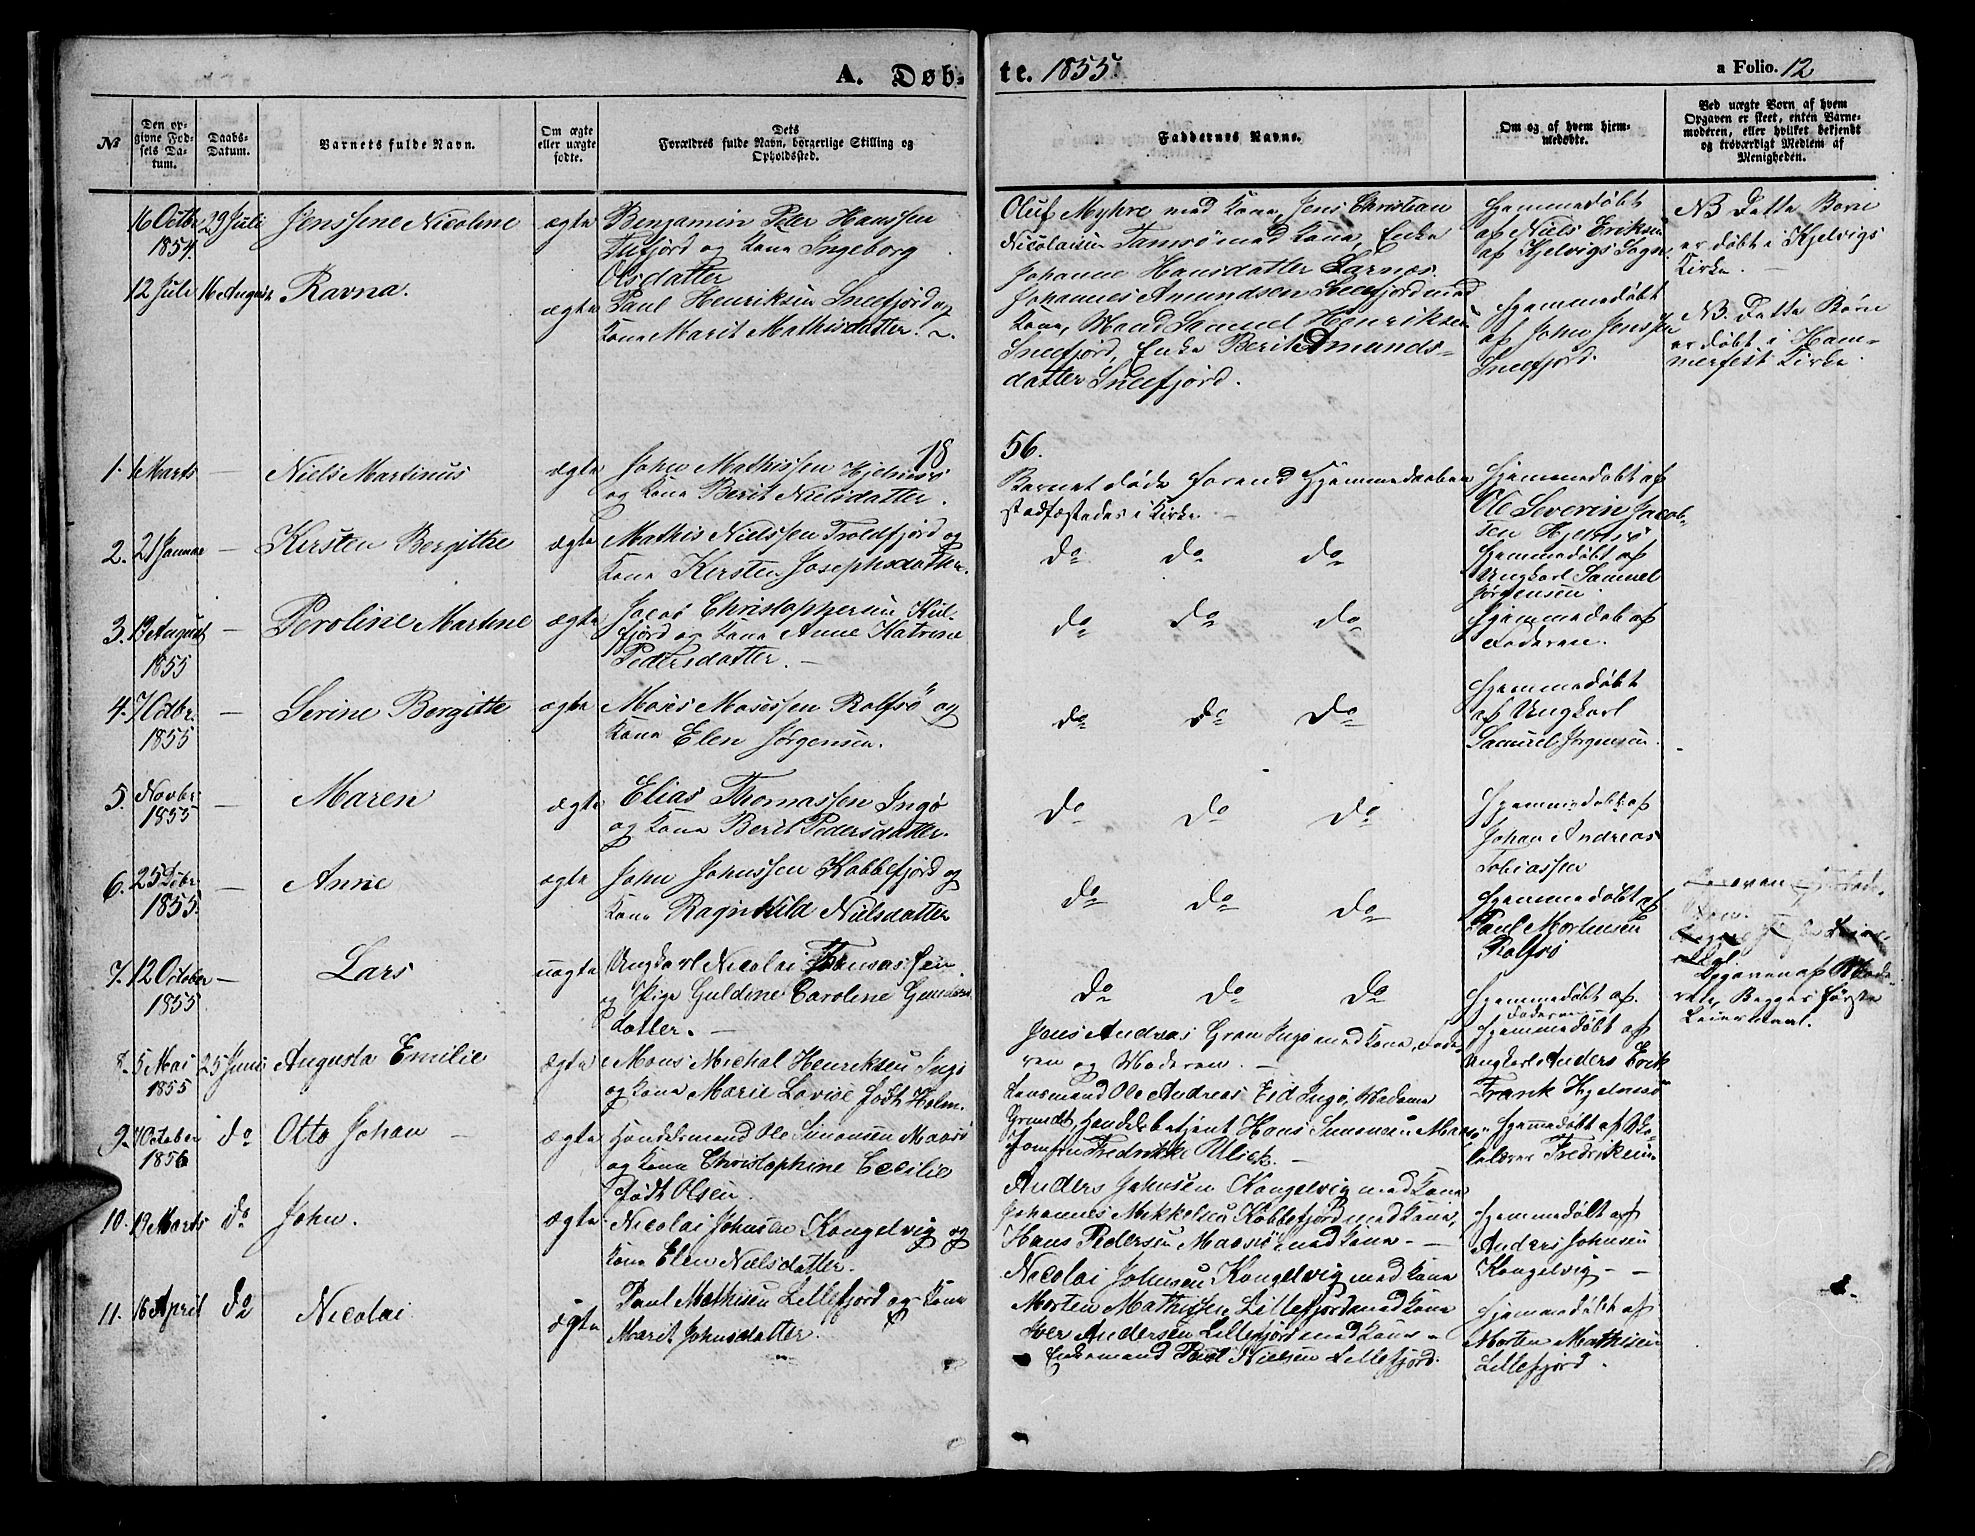 A. Døb-
te. 1855.
a Folio. 12
№
Den op-
givne Fød-
sels Da-
tum.
Daabs-
Datum.
Barnets fulde Navn.
Om ægte
eller uægte
fødte.
Dets
Forældres fulde Navn, borgerlige Stilling og
Opholdssted.
Faddernes Navne.
Om og af hvem hjem-
medøbte.
Ved uægte Børn af hvem
Opgaven er skeet, enten Barne-
moderen, eller hvilket bekjendt
og troværdigt Medlem af
Menigheden.
16 Octbr
1854.
29 Juli
Jenssine Nicoline
ægte
Benjamin Peter Hanssen
og Kone Ingeborg
Olsdatter
Oluf Myhre med Kone, Jens Christian
Nicolaisen Tamsø med Kone, Enke
Johanne Hansdatter Sarnæs.
Hjemmedøbt
af Niels Eriksen
af Kjelvigs Sogn
NB Dette Barn
er døbt i Kjelvigs
Kirke. —
12 Juli
16 August
Ravna.
ægte
Paul Henriksen Sneefjord og
Kone Marit Mathisdatter.
Johannes Amundsen Sneefjord med
Kone, Mand Samuel Henriksen
Sneefjord, Enke Berit Amunds-
datter Sneefjord.
Hjemmedøbt
af John Jenssen
Sneefjord.
NB. Dette Barn
er døbt i Ham-
merfest Kirke.
18
56.
1.
1 Marts
—
Niels Martinus
ægte
John Mathissen Hjelmsø
og Kone Berit Nielsdatter.
Barnet døde forend Hjemmedaaben
stadfæstedes i Kirke. —
Hjemmedøbt af
Ole Severin Jacob-
sen Hjelmsø
2.
21 Januar
—
Kirsten Bergitte
ægte
Mathis Nielssen Troldfjord og
Kone Kirsten Josephsdatter.
do do do
Hjemmedøbt af
Ungkarl Samuel
Jørgensen.
3.
13 August
1855
—
Peroline Martine
ægte
Jacob Christophersen Kul-
fjord og Kone Anne Katrine
Pedersdatter. —
do do do
Hjemmedøb af
Faderen.
4.
7 Octbr.
1855
—
Serine Bergitte
ægte
Moses Mosessen Rolfsø og
Kone Elen Jørgensen.
do do do
Hjemmedøbt
af Ungkarl
Samuel Jørgensen.
5.
Novbr
1855
—
Maren
ægte
Elias Thomassen Ingø
og Kone Berit Pedersdatter.
do do do
Hjemmedøbt af
Johan Andreas
Tobiassen
6.
25 Dbr.
1855.
—
Anne
ægte
John Johnssen Kobbefjord og
Kone Ragnhild Nielsdatter
do do do
Hjemmedøbt af
Paul Mortensen
Rolfsø
7.
12 October
1855.
—
Lars
uægte
Ungkarl Nicolai Thomassen
og Pige Guldine Caroline
datter. —
do do do
Hjemmedøbt af.
Faderen
Opgaven af Mode-
ren, Begges første
Leiermaal.
8.
5 Mai
1855
25 Juni
Augusta Emilie
ægte
Mons Michal Henriksen Ingø
og Kone Marie Lovise født Holm.
Jens Andreas Gran Ingø med Kone, Fade-
ren og Moderen. —
Hjemmedøbt af
Ungkarl Anders Erik
Frank Hjelmsø
9.
7 October
1856
do
Otto Johan —
ægte
Handelsmand Ole Simonsen Maasø
og Kone Christophine Cecilie
født Olsen.
Lensmand Ole Andreas Eid Ingø, Madame
Handelsbetjent Hans Simonsen Maasø
Jomfru Fredrikke Ulich. —
Hjemmedøbt af Sko-
lelærer Fredriksen.
10.
19 Marts
do
John.
ægte
Nicolai Johnsen Kongelvig og
Kone Elen Nielsdatter.
Anders Johnsen Kongelvig med Kone
Johannes Mikkelsen Kobbefjord med Kone,
Hans Pedersen Maasø med Kone. —
Hjemmedøbt af
Anders Johnsen
Kongelvig. —
11.
16 April
do
Nicolai
ægte
Paul Mathisen Lillefjord og Kone
Marit Johnsdatter.
Nicolai Johnsen Kongelvig med Kone
Morten Mathissen Lillefjord med Kone
Iver Andersen Lillefjord med Kone.
Enkemand Poul Nielsen Lillefjord.
Hjemmedøbt af
Morten Mathisen
Lillefjord.